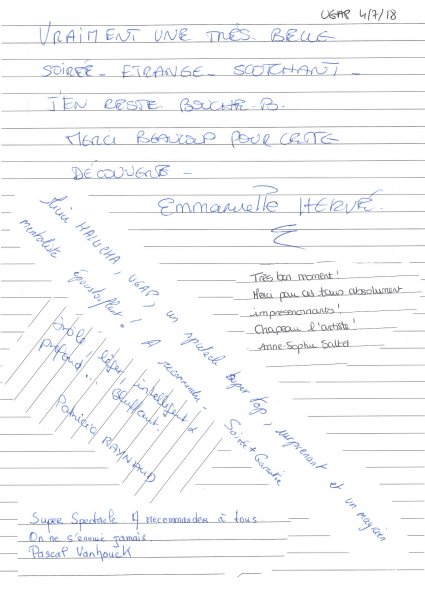 UGAP 4/7/18
VRAIMENT UNE TRÈS BELLE
SOIRÉE - ETRANGE - SCOTCHANT -
J'EN RESTE BOUCHE-B.
MERCI BEAUCOUP POUR CETTE
DÉCOUVERTE -
Emmanuelle HERVÉ.
Très bon moment!
Merci pour ces tours absolument
impressionnants!
Chapeau l'artiste!
Anne-Sophie
UGAP, un spectacle super top, surprenant et un magicien
mentaliste époustouflant! A recommander -
Soirée + Garantie
drôle, léger, intelligent &
profond!. bluffant.
Patricia RAYNAUD
Super Spectacle A recommander à tous.
On ne s'ennuie jamais
Pascal Vanhouck